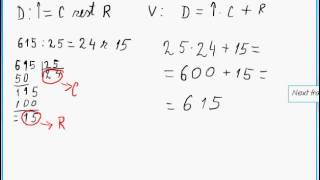 D : î = C rest R
V: D = î · C + R
615 : 25 = 24 r. 15
25 · 24 + 15 =
= 600 + 15 =
= 615
615 | 25
50 | 24
115 → C
100
= 15 → R